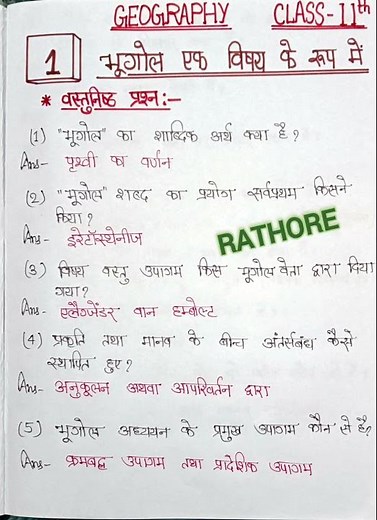 GEOGRAPHY CLASS-11th
1 भूगोल एक विषय के रूप में
* वस्तुनिष्ठ प्रश्न:-
(1) "भूगोल" का शाब्दिक अर्थ क्या है?
Ans- पृथ्वी का वर्णन
(2) "भूगोल" शब्द का प्रयोग सर्वप्रथम किसने
किया?
Ans- इरेटॉस्थेनीज
RATHORE
(3) विषय वस्तु उपागम किस भूगोल वेता द्वारा दिया
गया?
Ans- एलैग्जेंडर वान हम्बोल्ट
(4) प्रकृति तथा मानव के बीच अंतर्संबंध कैसे
स्थापित हुए?
Ans- अनुकूलन अथवा आपरिवर्तन द्वारा
(5) भूगोल अध्ययन के प्रमुख उपागम कौन से है?
Ans- क्रमबद्ध उपागम तथा प्रादेशिक उपागम